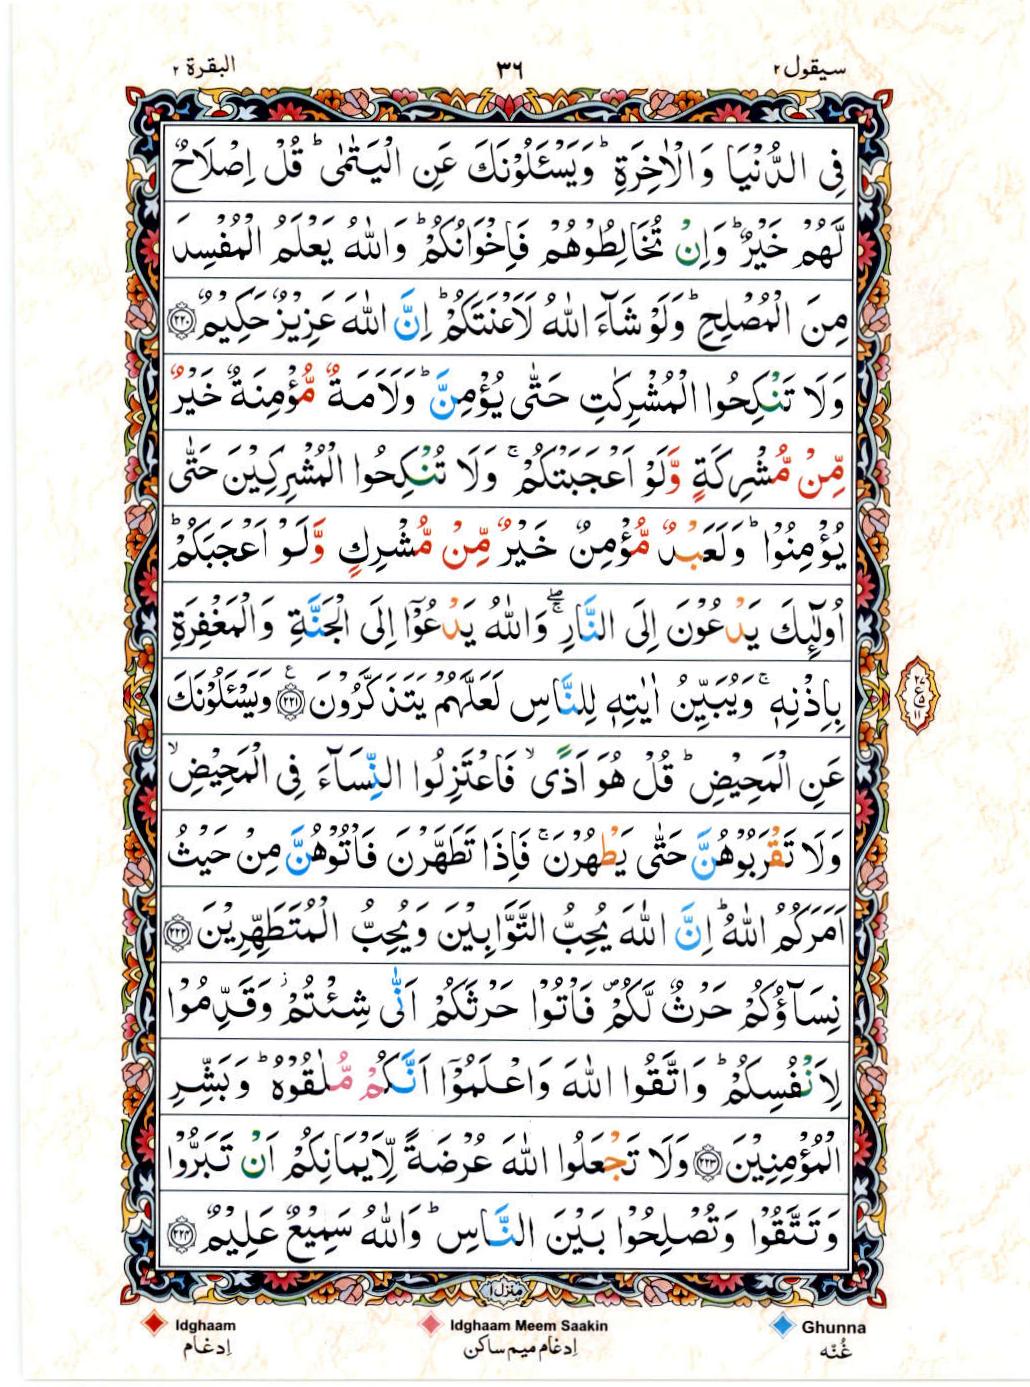 سيقول ٢ ٣٦ البقرة ٢
فِى الدُّنْيَا وَالْاٰخِرَةِ ؕ وَيَسْـَٔلُوْنَكَ عَنِ الْيَتٰمٰى ؕ قُلْ اِصْلَاحٌ
لَّهُمْ خَيْرٌ ؕ وَاِنْ تُخَالِطُوْهُمْ فَاِخْوَانُكُمْ ؕ وَاللّٰهُ يَعْلَمُ الْمُفْسِدَ
مِنَ الْمُصْلِحِ ؕ وَلَوْ شَآءَ اللّٰهُ لَاَعْنَتَكُمْ ؕ اِنَّ اللّٰهَ عَزِيْزٌ حَكِيْمٌ ﴿٢٢٠﴾
وَلَا تَنْكِحُوا الْمُشْرِكٰتِ حَتّٰى يُؤْمِنَّ ؕ وَلَاَمَةٌ مُّؤْمِنَةٌ خَيْرٌ
مِّنْ مُّشْرِكَةٍ وَّلَوْ اَعْجَبَتْكُمْ ۚ وَلَا تُنْكِحُوا الْمُشْرِكِيْنَ حَتّٰى
يُؤْمِنُوْا ؕ وَلَعَبْدٌ مُّؤْمِنٌ خَيْرٌ مِّنْ مُّشْرِكٍ وَّلَوْ اَعْجَبَكُمْ ؕ
اُولٰٓئِكَ يَدْعُوْنَ اِلَى النَّارِ ۖۚ وَاللّٰهُ يَدْعُوْٓا اِلَى الْجَنَّةِ وَالْمَغْفِرَةِ
بِاِذْنِهٖ ۚ وَيُبَيِّنُ اٰيٰتِهٖ لِلنَّاسِ لَعَلَّهُمْ يَتَذَكَّرُوْنَ ﴿٢٢١﴾ ع وَيَسْـَٔلُوْنَكَ
عَنِ الْمَحِيْضِ ؕ قُلْ هُوَ اَذًى ۙ فَاعْتَزِلُوا النِّسَآءَ فِى الْمَحِيْضِ ۙ
وَلَا تَقْرَبُوْهُنَّ حَتّٰى يَطْهُرْنَ ۚ فَاِذَا تَطَهَّرْنَ فَاْتُوْهُنَّ مِنْ حَيْثُ
اَمَرَكُمُ اللّٰهُ ؕ اِنَّ اللّٰهَ يُحِبُّ التَّوَّابِيْنَ وَيُحِبُّ الْمُتَطَهِّرِيْنَ ﴿٢٢٢﴾
نِسَآؤُكُمْ حَرْثٌ لَّكُمْ ۪ فَاْتُوْا حَرْثَكُمْ اَنّٰى شِئْتُمْ ؗ وَقَدِّمُوْا
لِاَنْفُسِكُمْ ؕ وَاتَّقُوا اللّٰهَ وَاعْلَمُوْٓا اَنَّكُمْ مُّلٰقُوْهُ ؕ وَبَشِّرِ
الْمُؤْمِنِيْنَ ﴿٢٢٣﴾ وَلَا تَجْعَلُوا اللّٰهَ عُرْضَةً لِّاَيْمَانِكُمْ اَنْ تَبَرُّوْا
وَتَتَّقُوْا وَتُصْلِحُوْا بَيْنَ النَّاسِ ؕ وَاللّٰهُ سَمِيْعٌ عَلِيْمٌ ﴿٢٢٤﴾
منزل ١
Idghaam Idghaam Meem Saakin Ghunna
اِدغَام اِدغَام ميم ساكن غُنّه